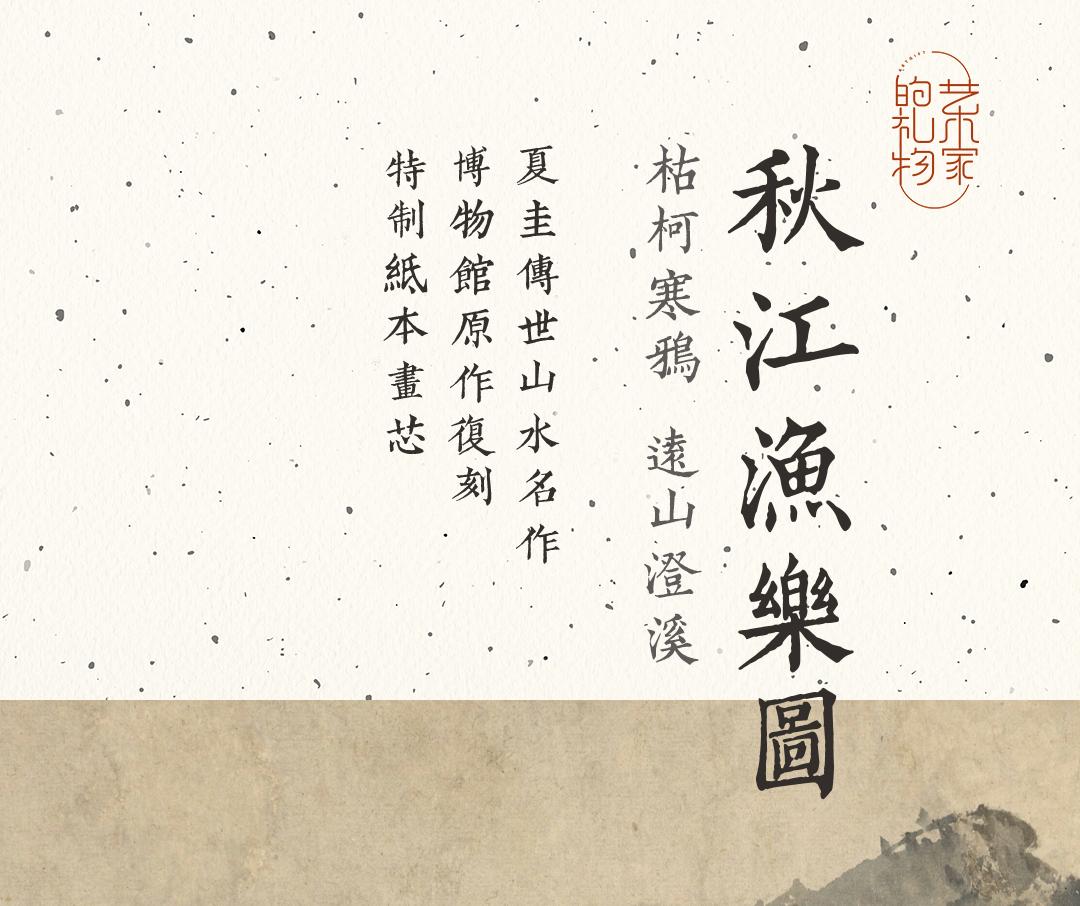 艺术家
的礼物
秋江漁樂圖
枯柯寒鴉 遠山澄溪
夏圭傳世山水名作
博物館原作復刻
特制紙本畫芯